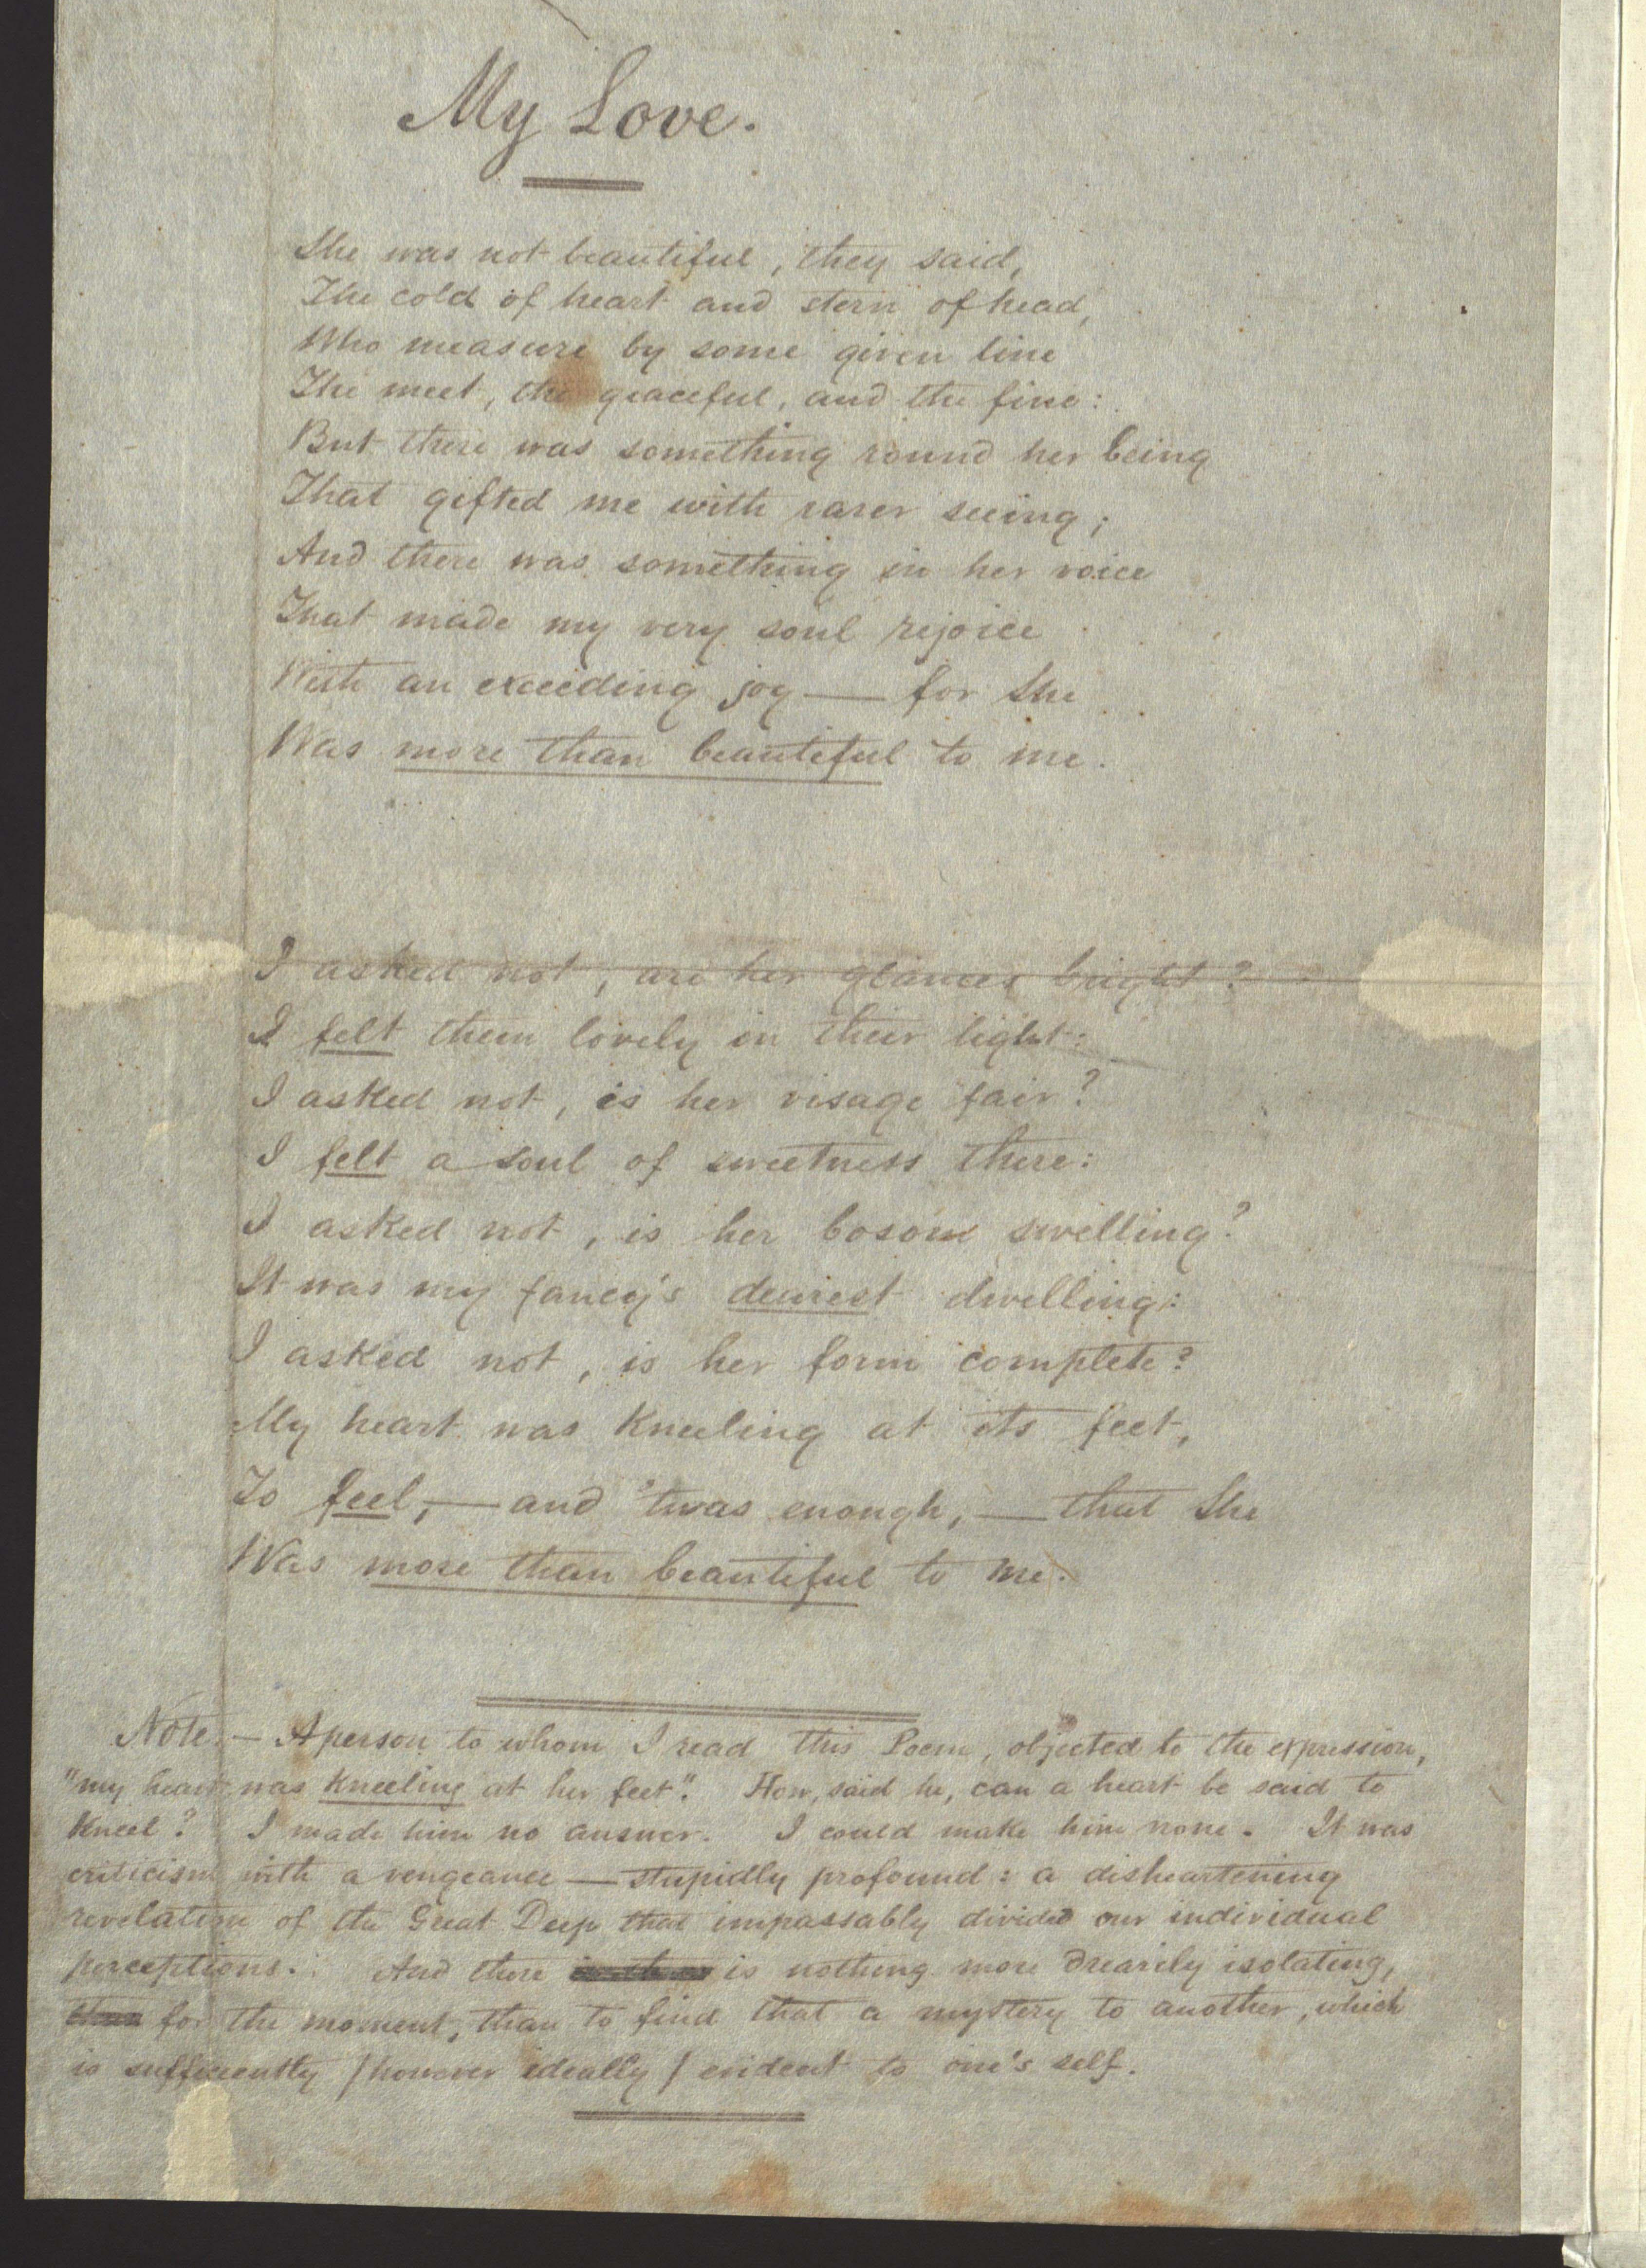 My Love.
She was not beautiful, they said,
The cold of heart and stern of head,
Who measure by some given line
The meet, the graceful, and the fine:
But there was something round her being
That gifted me with rarer seeing;
And there was something in her voice
That made my very soul rejoice
With an exceeding joy — for She
Was more than beautiful to me.
I asked not, are her glances bright?
I felt them lovely in their light:
I asked not, is her visage fair?
I felt a soul of sweetness there:
I asked not, is her bosom swelling?
It was my fancy's dearest dwelling:
I asked not, is her form complete?
My heart was kneeling at its feet,
To feel, — and 'twas enough, — that She
Was more than beautiful to me.
Note. — A person to whom I read this Poem, objected to the expression,
"my heart was kneeling at her feet". How, said he, can a heart be said to
kneel? I made him no answer. I could make him none. It was
criticism with a vengeance — stupidly profound: a disheartening
revelation of the Great Deep that impassably divided our individual
perceptions. And there is nothing more drearily isolating,
than for the moment, than to find that a mystery to another, which
is sufficiently / however ideally / evident to one's self.